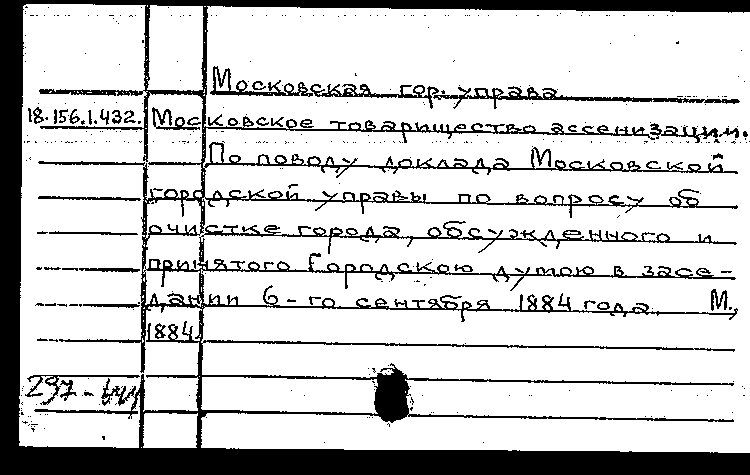 Московская гор. управа
18.156.1.432. Московское товарищество ассенизации.
По поводу доклада Московской
городской управы по вопросу об
очистке города, обсужденного и
принятого Городскою думою в засе-
дании 6-го сентября 1884 года М.,
1884.
297 -